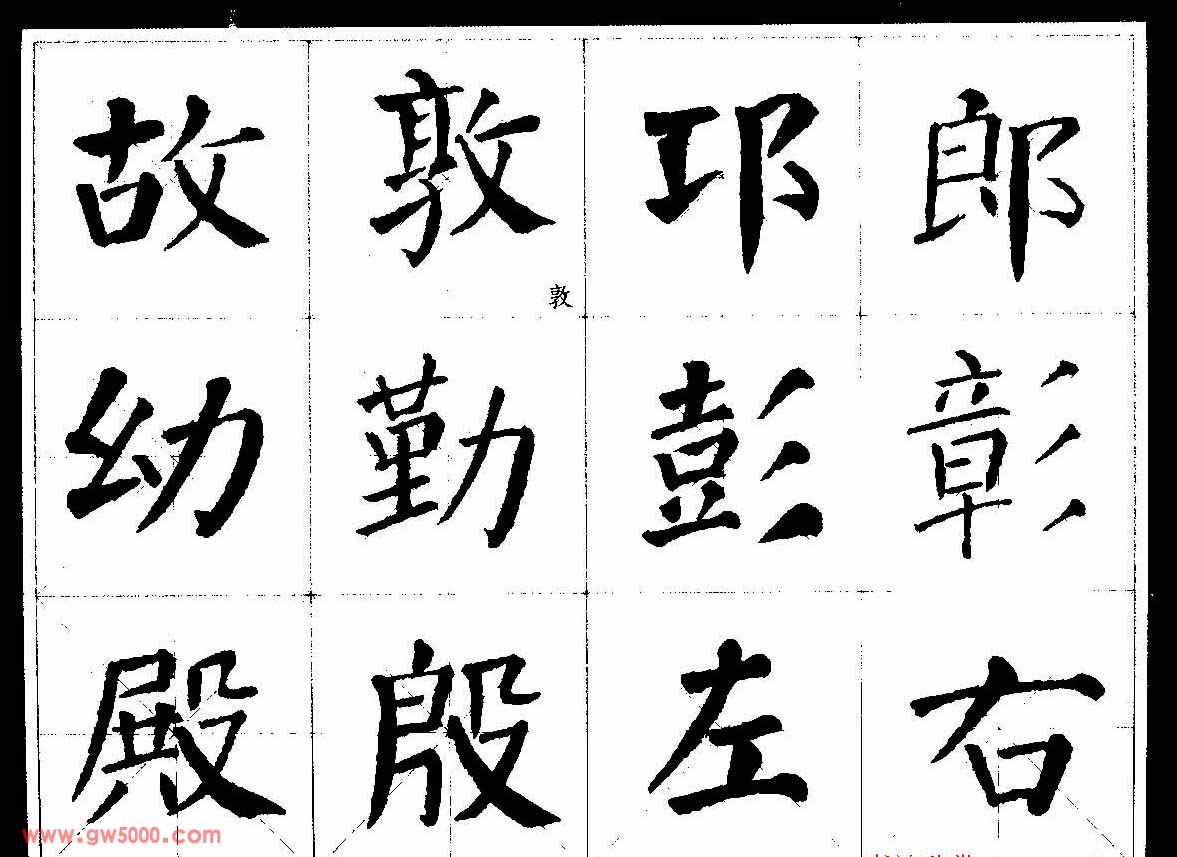 故敦邛郎
敦
幼勤彭彰
殿殷左右
www.gw5000.com